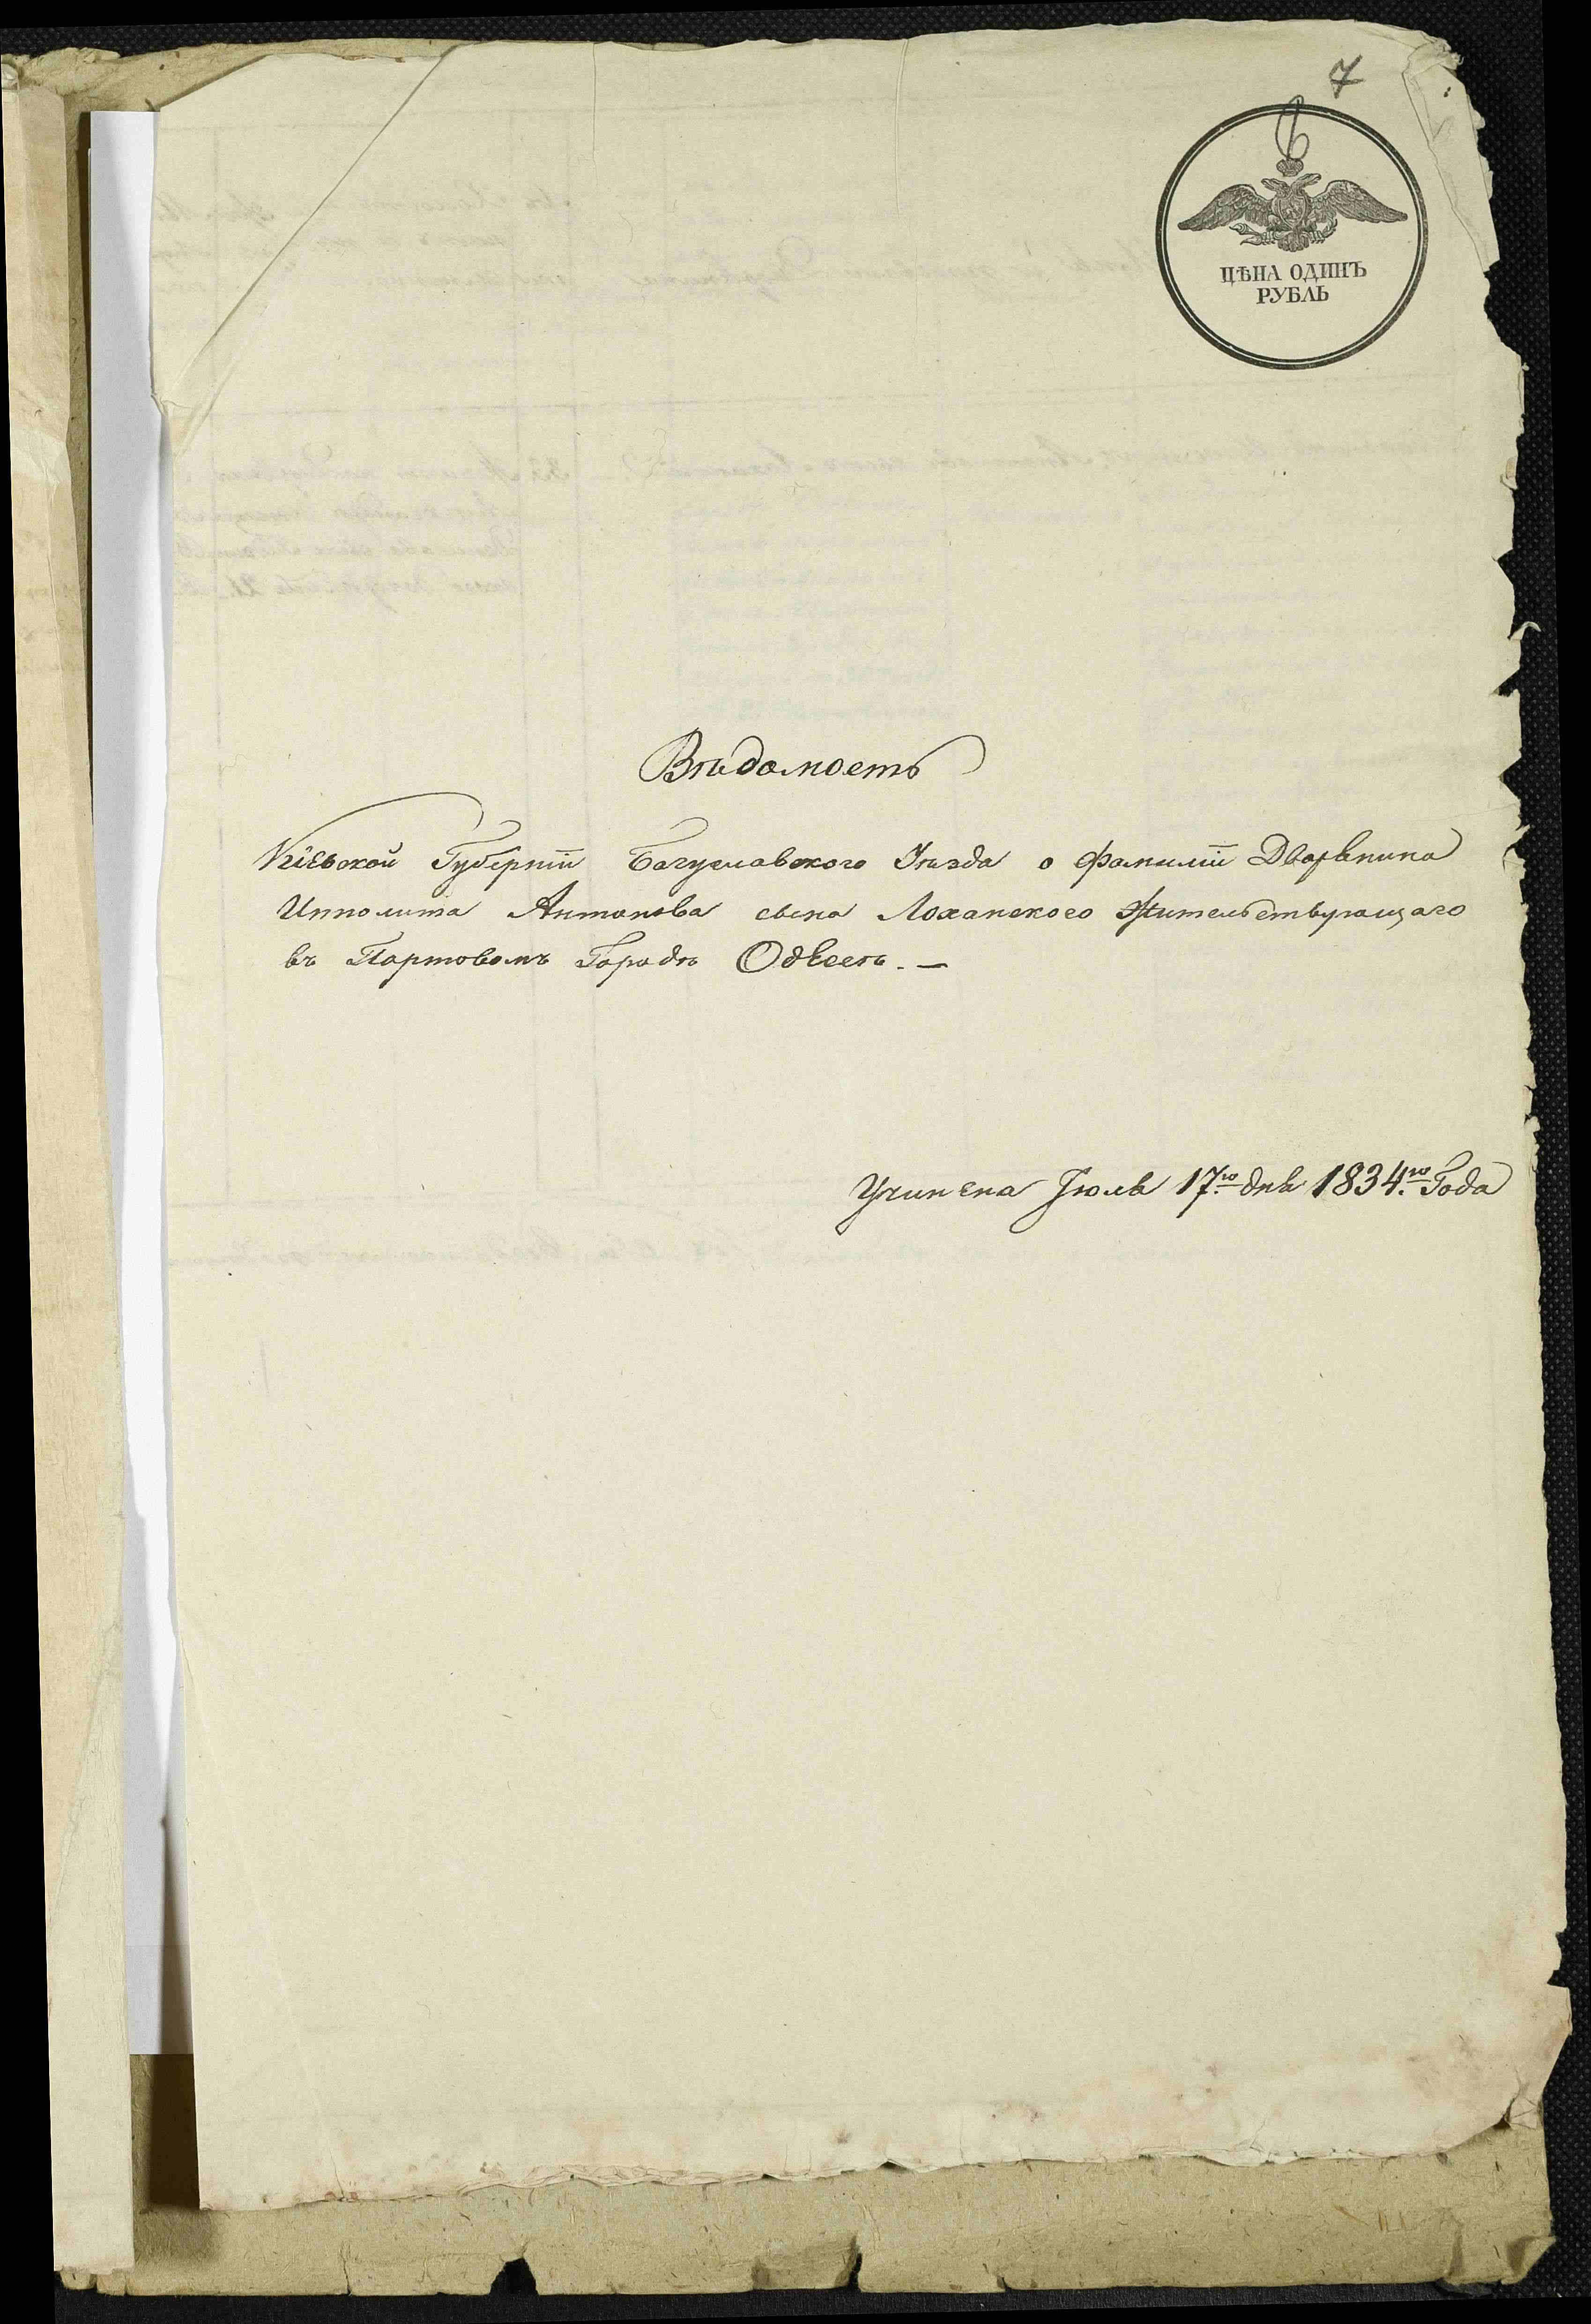 7
6
ЦѢНА ОДИНЪ
РУБЛЬ
Вѣдомость
Кіевской Губерніи Багуславского Уѣзда о фамиліи Дворянина
Ипполита Антонова сына Лоханского Жительствующаго
въ Партовомъ Городѣ Одессѣ. —
Учинена Іюля 17го дня 1834го Года